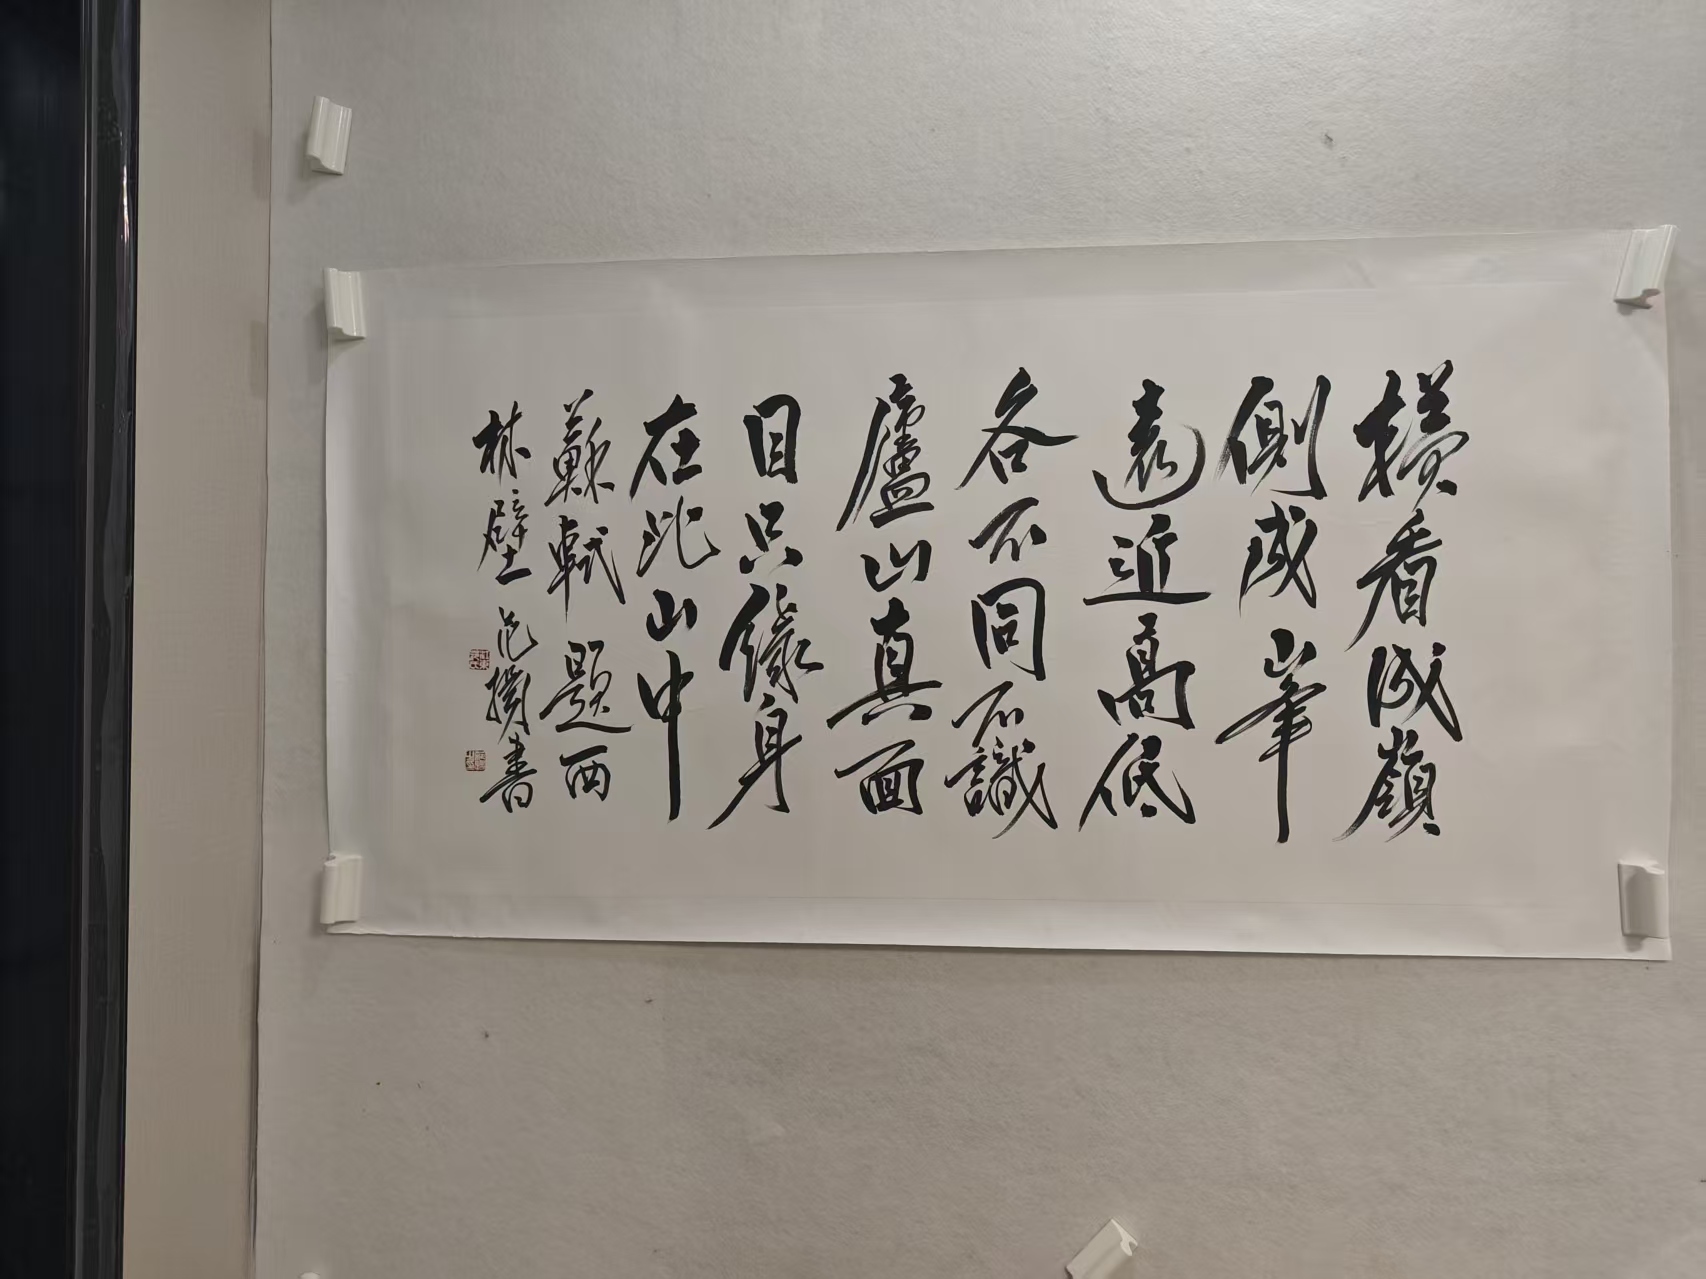 横看成嶺
側成山峯
遠近高低
各不同不識
廬山真面
目只緣身
在此山中
蘇軾題西
林壁 范
書